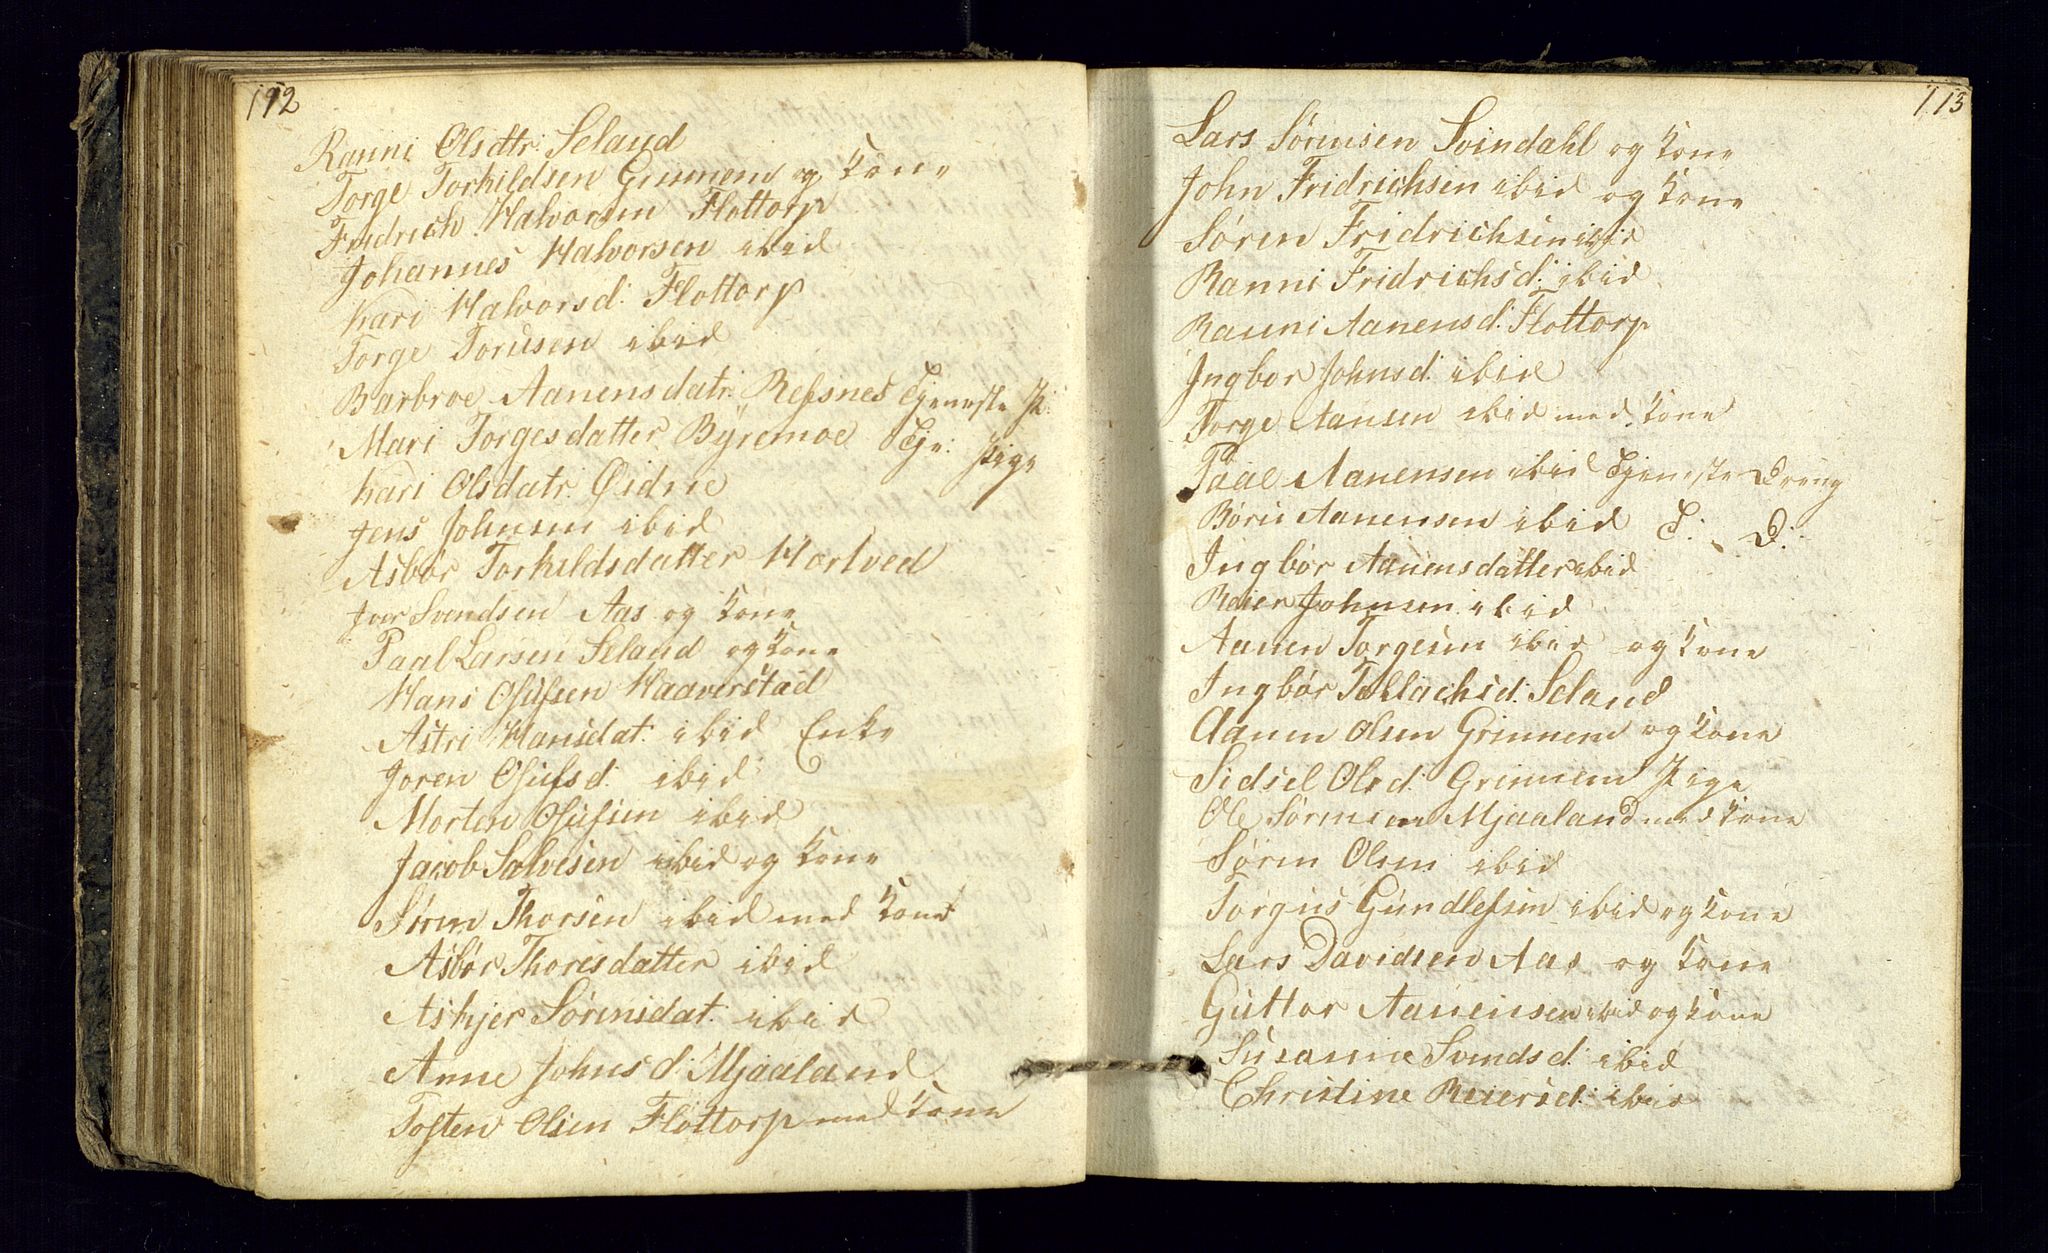 192
Ranni Olsdtr: Seland
Torge Torkildsen Grinnem og Kone
Fridrich Halvorsen Flottorp
Johannes Halvorsen ibid
Kari Halvorsd: Flottorp
Torge Torüsen ibid
Barbroe Aanensdatr: Refsnes Tjeneste P:
Mari Torgesdatter Byremoe Tje: Pige
Kari Olsdatr. Øidne
Jens Johnsen ibid
Asbør Torkildsdatter Hortved
Iver Svendsen Aas og Kone
Paal Larsen Seland og Kone
Hans Osüfsen Haaverstad
Astri Hansdat: ibid Enke
Joren Osüfsd: ibid
Morten Osüfsen ibid
Jacob Salvesen ibid og Kone
Sören Thorsen ibid med Kone
Asbør Thoresdatter ibid
Askjer Sörensdat: ibid
Anne Johnsd: Mjaaland
Tosten Olsen Flottorp med Kone
113
Lars Sörensen Svindahl og Kone
John Fridrichsen ibid og Kone
Sören Fridrichsen ibid
Ranni Fridrichsd: ibid
Ranni Aanensd: Flottorp
Ingbor Johnsd: ibid
Torge Aansen ibid med Kone
Paal Aanensen ibid Tjeneste Dreng
Börü Aanensen ibid T: D:
Ingbör Aanensdatter ibid
Reier Johnsen ibid
Aanen Torgesen ibid og Kone
Ingbör Tallachsd: Seland
Aanen Olsen Grinnem og Kone
Sidsel Olsd: Grinnem Pige
Ole Sörensen Mjaaland med Kone
Sören Olsen ibid
Torgüs Gündlefsen ibid og Kone
Lars Davidsen Aas og Kone
Güttor Aanensen ibid og Kone
Süsanne Svendsd: ibid
Christine Reiersd: ibid